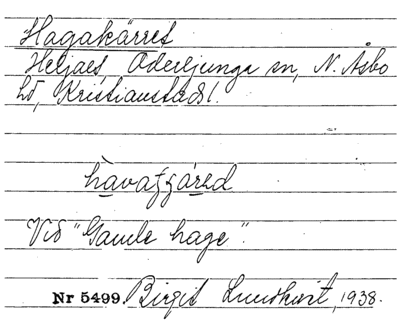 Hagakärret
Heljaes, Oderljunga sn, N. Åsbo
hd, Kristianstads l.
havatjäred
Vid "Gamle hage".
Nr 5499. Birgit Lundkvist, 1938.